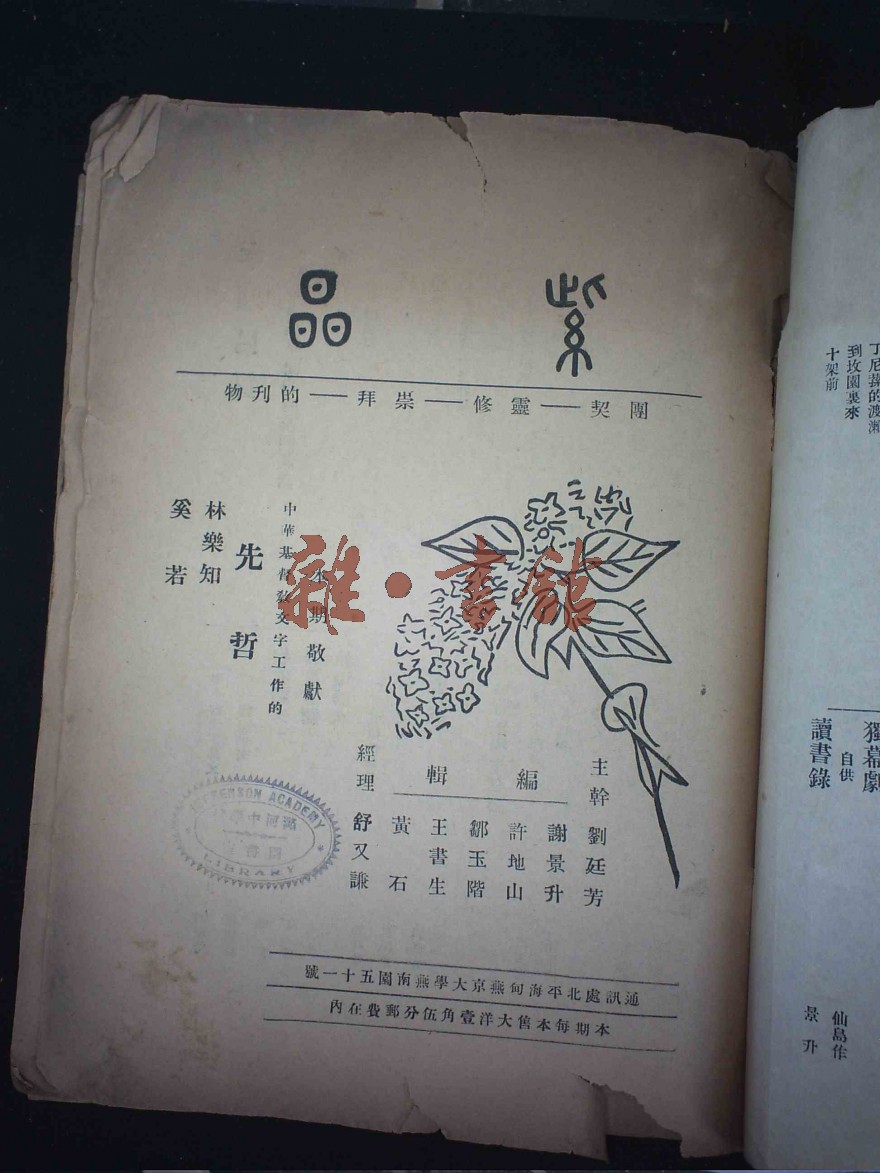 紫晶
團契—靈修—崇拜—的刊物
本期敬獻
中華基督教文字工作的
先哲
林樂知
奚若
主幹 劉廷芳
編輯
謝景升
許地山
鄒玉階
王書生
黃石
經理 舒又謙
通訊處北平海甸燕京大學燕南園五十一號
本期每本售大洋壹角伍分郵費在內
雜·書館
JEFFERSON ACADEMY
潞河中學
LIBRARY
到玫園裏來
十架前
獨幕劇
自供
讀書錄
仙島作
景升